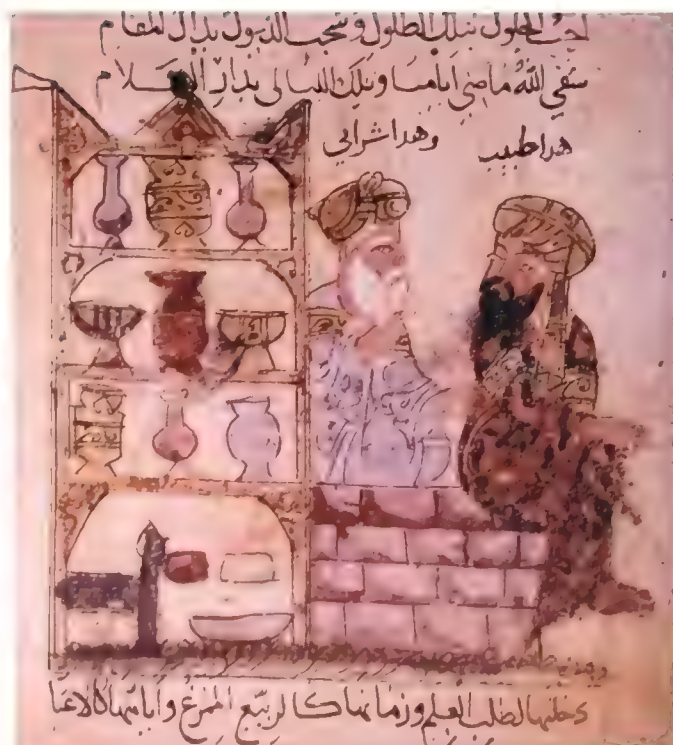 احب الحلول بتلك الطلول وسحب الذيول بدار المقام
سقي الله ماضي ايامنا وتلك الليالي بدار السلام
هدا طبيب
وهدا شرابي
دخلتها لطلب العلم وزمانها كالربيع الممرع وايامها كالاعيا